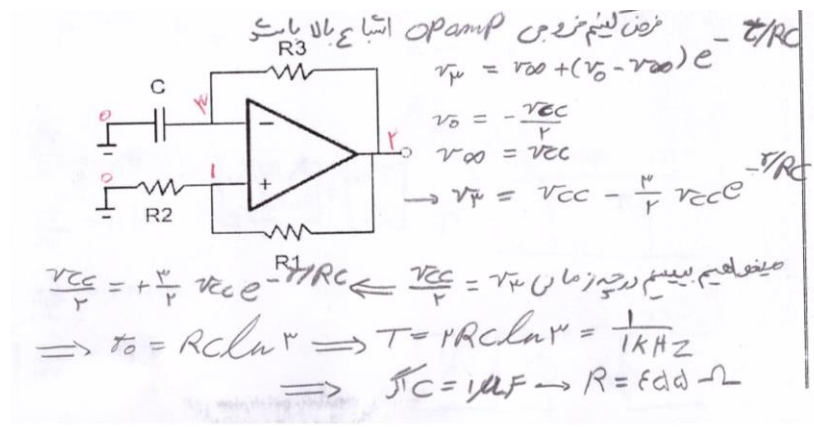 فرض کنیم خروجی OPamP اشباع بالا باشد
R3
C
۳
0
−
۲
0
۱
+
R2
R1
v۳ = v∞ + (v0 - v∞) e^{-t/RC}
v0 = - vcc/۲
v∞ = vcc
→ v۳ = vcc - ۳/۲ vcc e^{-t/RC}
میخواهیم ببینیم در چه زمانی v۳ = vcc/۲ ⇐ vcc/۲ = + ۳/۲ vcc e^{-t/RC}
⇒ t0 = RC ln ۳ ⇒ T = ۲RC ln ۳ = 1/1KHZ
⇒ if C = 1μF → R = ٤۵۵ Ω